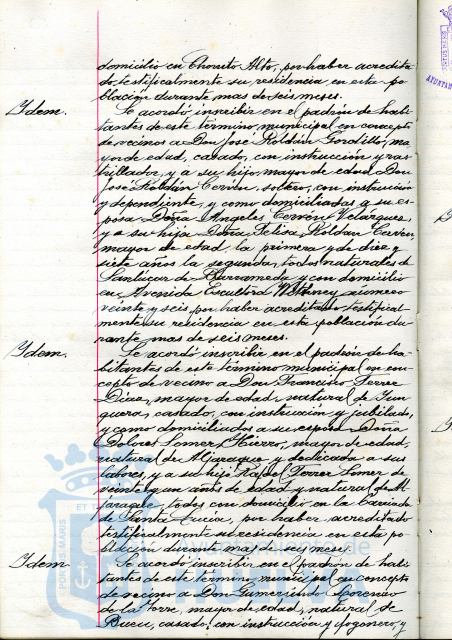 domicilio en Chorrito Alto, por haber acredita-
do testificalmente su residencia en esta po-
blación durante mas de seis meses.
Idem. Se acordó inscribir en el padrón de habi-
tantes de este término municipal en concepto
de vecinos a Don José Roldán Gordillo, ma
yor de edad, casado, con instrucción y ras-
trillador, y a su hijo mayor de edad Don
José Roldán Cerrón, soltero, con instrucción
y dependiente, y como domiciliadas a su es-
posa Doña Angeles Cerrón Velazquez
y a su hija Doña Felisa Roldan Cerron
mayor de edad la primera y de diez y
siete años la segunda, todos naturales de
Sanlúcar de Barrameda y con domicilio
en Avenida Escultora Whitney número
veinte y seis, por haber acreditado testifical-
mente su residencia en esta población du-
rante mas de seis meses.
Idem. Se acordó inscribir en el padrón de ha-
bitantes de este término municipal en con-
cepto de vecino a Don Francisco Ferrer
Diaz, mayor de edad, natural de Yun
quera, casado, con instrucción y jubilado,
y como domiciliados a su esposa Doña
Dolores Lomer Hierro, mayor de edad,
natural de Aljaraque y dedicada a sus
labores, y a su hijo Rafael Ferrer Lomer de
veinte y un años de edad y natural de Al-
jaraque, todos con domicilio en la Barriada
de Santa Lucia, por haber acreditado
testificalmente su residencia en esta po-
blación durante mas de seis meses.
Idem Se acordó inscribir en el padrón de habi-
tantes de este término municipal en concepto
de vecino a Don Gumersindo Lorenzo
de la Torre, mayor de edad, natural de
Bueu, casado, con instrucción y fogonero, y
PORTUS MARIS
ET TE
Ayuntamiento de